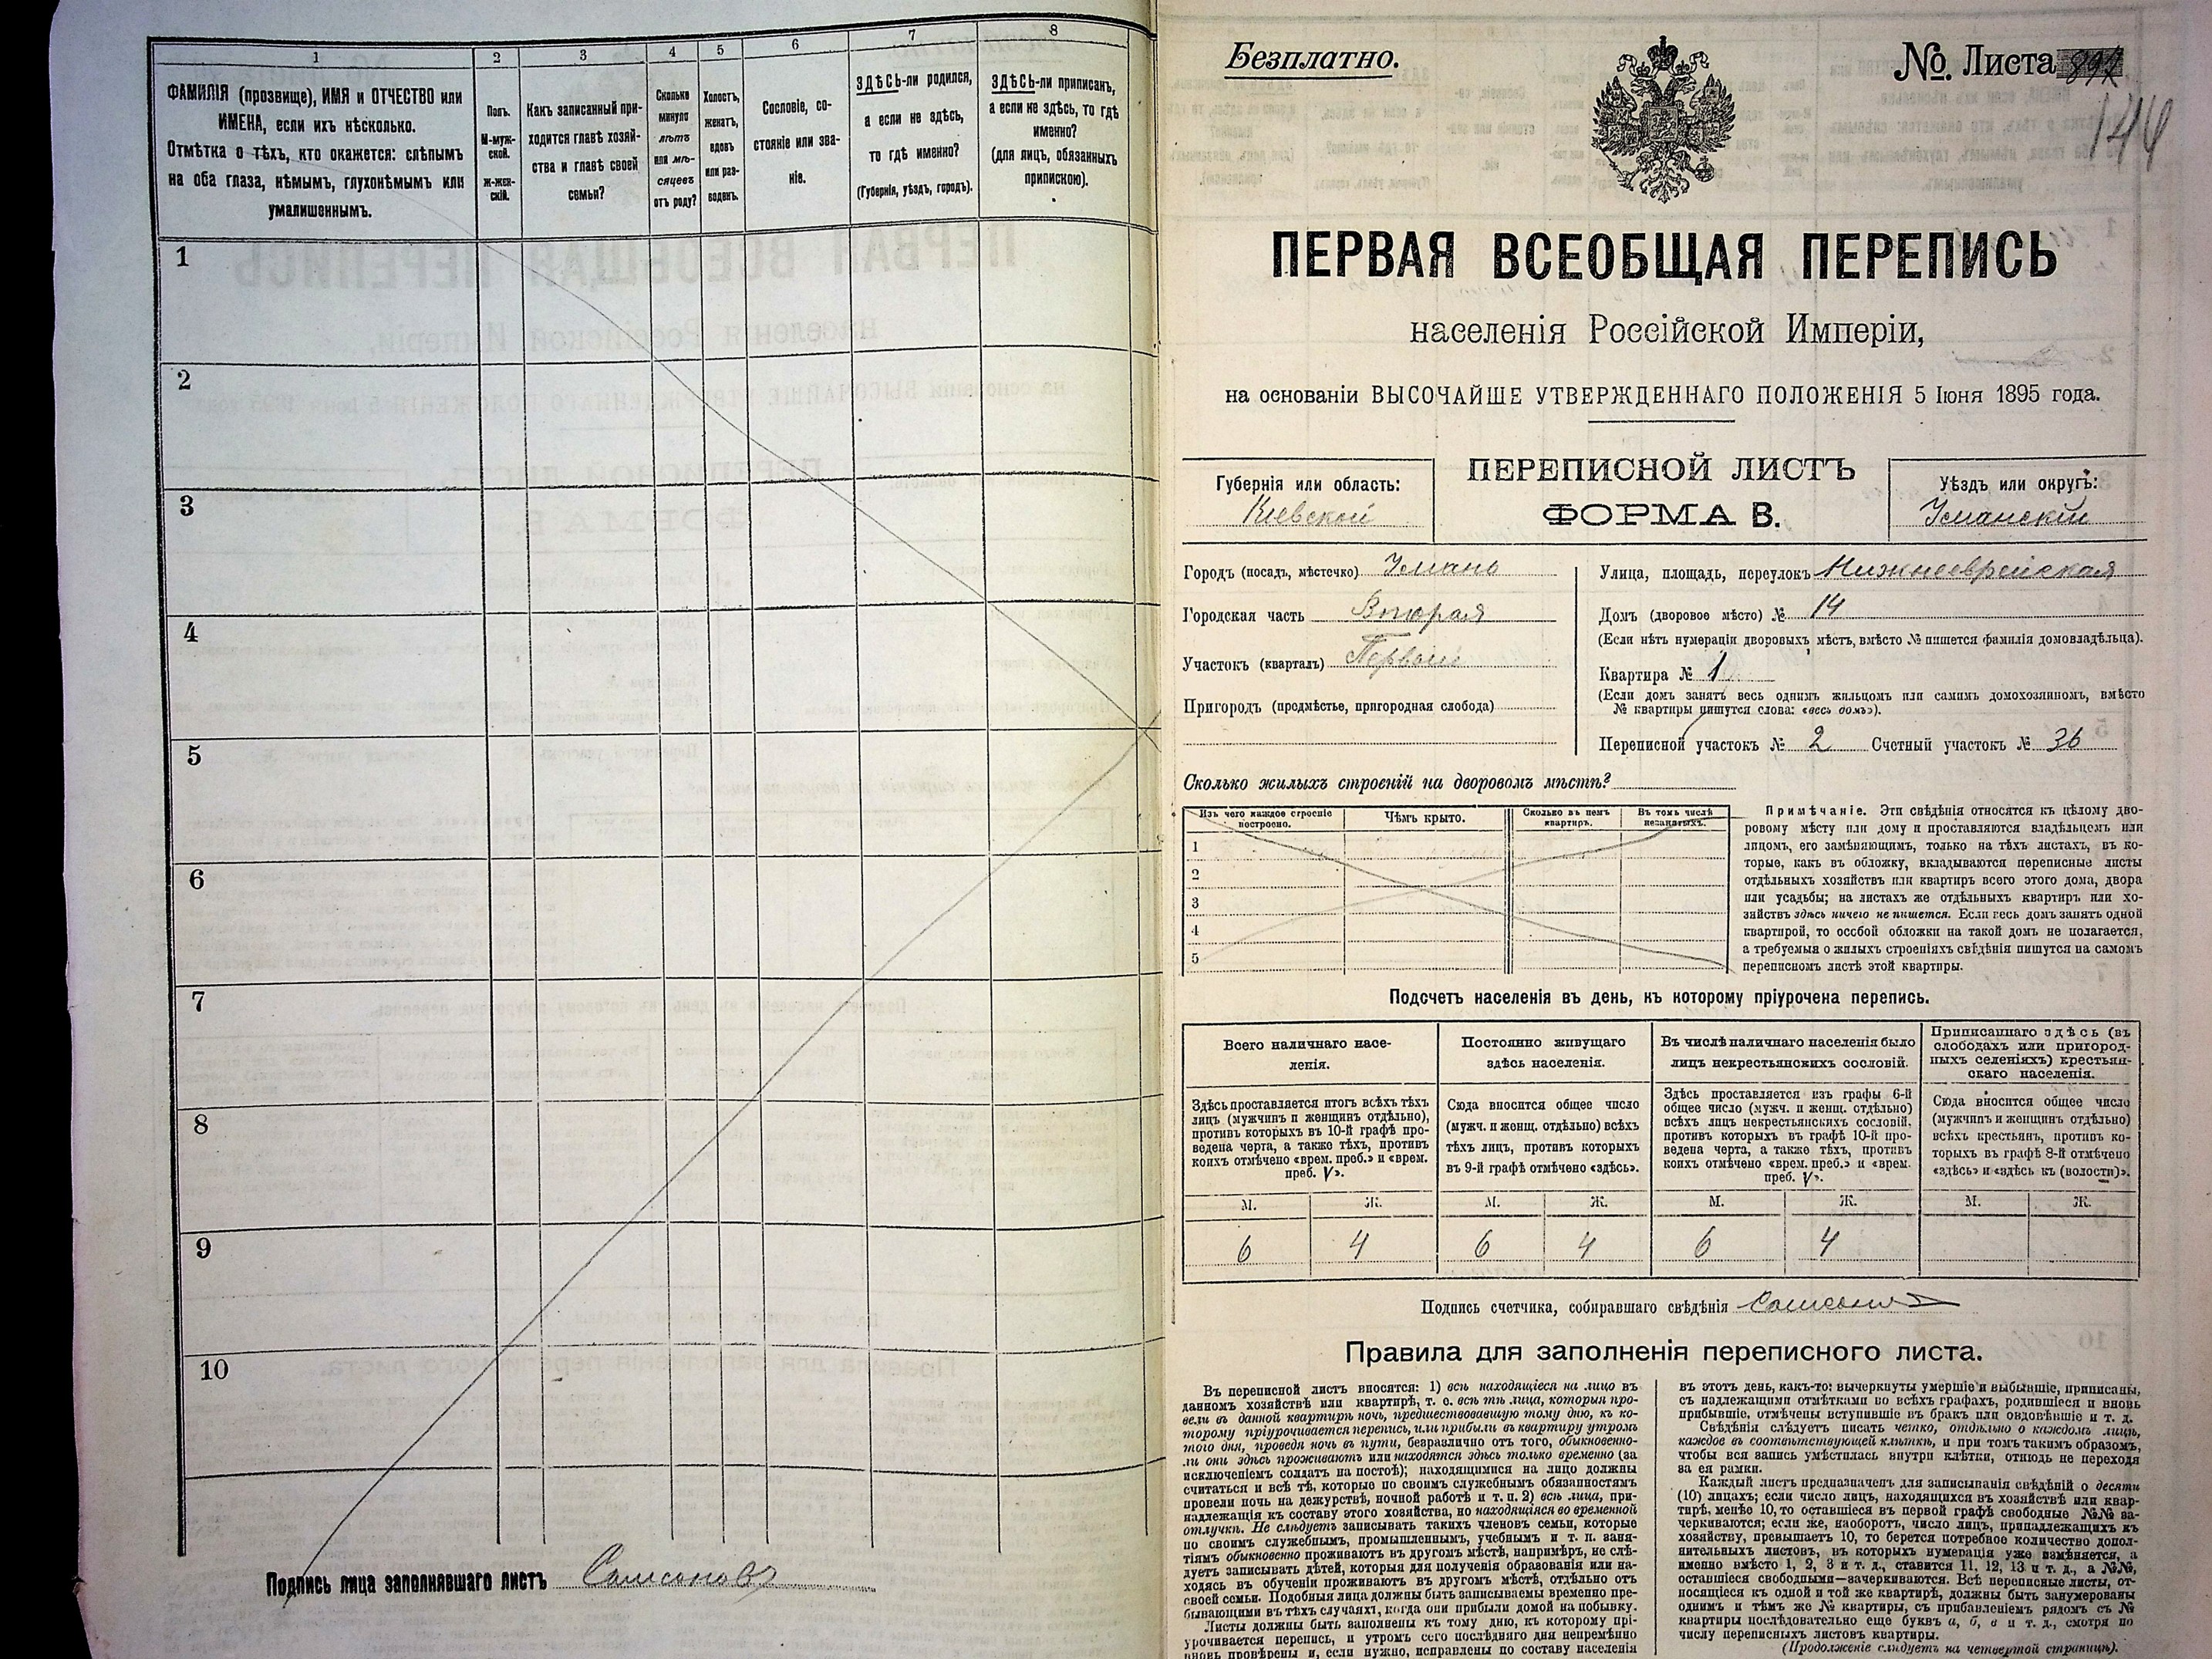 1 2 3 4 5 6 7 8
ФАМИЛІЯ (прозвище), ИМЯ и ОТЧЕСТВО или
ИМЕНА, если ихъ нѣсколько.
Отмѣтка о тѣхъ, кто окажется: слѣпымъ
на оба глаза, нѣмымъ, глухонѣмымъ или
умалишоннымъ.
Полъ.
М-муж-
ской.
Ж-жен-
скій.
Какъ записанный при-
ходится главѣ хозяй-
ства и главѣ своей
семьи?
Сколько
минуло
лѣтъ
или мѣ-
сяцевъ
отъ роду?
Холостъ,
женатъ,
вдовъ
или раз-
веденъ.
Сословіе, со-
стояніе или зва-
ніе.
ЗДѢСЬ-ли родился,
а если не здѣсь,
то гдѣ именно?
(Губернія, уѣздъ, городъ).
ЗДѢСЬ-ли приписан,
а если не здѣсь, то гдѣ
именно?
(для лицъ, обязанныхъ
припискою).
1
2
3
4
5
6
7
8
9
10
Подпись лица заполнявшаго листъ Самсоновъ
Безплатно.
№ Листа
144
ПЕРВАЯ ВСЕОБЩАЯ ПЕРЕПИСЬ
населенія Россійской Имперіи,
на основаніи ВЫСОЧАЙШЕ УТВЕРЖДЕННАГО ПОЛОЖЕНІЯ 5 Іюня 1895 года.
Губернія или область:
Кіевской
ПЕРЕПИСНОЙ ЛИСТЪ
ФОРМА В.
Уѣздъ или округъ:
Уманскій
Городъ (посадъ, мѣстечко) Умань
Городская часть Вторая
Участокъ (кварталъ) Первый
Пригородъ (предмѣстье, пригородная слобода)
Улица, площадь, переулокъ Нижнееврейская
Домъ (дворовое мѣсто) № 14
(Если нѣтъ нумераціи дворовыхъ мѣстъ, вмѣсто № пишется фамилія домовладѣльца).
Квартира № 1
(Если домъ занятъ весь однимъ жильцомъ или самимъ домохозяиномъ, вмѣсто
№ квартиры пишутся слова: «весь домъ»).
Переписной участокъ № 2 Счетный участокъ № 36
Сколько жилыхъ строеній на дворовомъ мѣстѣ?
Изъ чего каждое строеніе
построено.
Чѣмъ крыто.
Сколько въ немъ
квартиръ.
Въ томъ числѣ
незанятыхъ.
1
2
3
4
5
Примѣчаніе. Эти свѣдѣнія относятся къ цѣлому дво-
ровому мѣсту или дому и проставляются владѣльцемъ или
лицомъ, его замѣняющимъ, только на тѣхъ листахъ, въ ко-
торые, какъ въ обложку, вкладываются переписные листы
отдѣльныхъ хозяйствъ или квартиръ всего этого дома, двора
или усадьбы; на листахъ же отдѣльныхъ квартиръ или хо-
зяйствъ здѣсь ничего не пишется. Если весь домъ занятъ одной
квартирой, то особой обложки на такой домъ не полагается,
а требуемыя о жилыхъ строеніяхъ свѣдѣнія пишутся на самомъ
переписномъ листѣ этой квартиры.
Подсчетъ населенія въ день, къ которому пріурочена перепись.
Всего наличнаго насе-
ленія.
Постоянно живущаго
здѣсь населенія.
Въ числѣ наличнаго населенія было
лицъ некрестьянскихъ сословій.
Приписаннаго здѣсь (въ
слободахъ или пригород-
ныхъ селеніяхъ) крестьян-
скаго населенія.
Здѣсь проставляется итогъ всѣхъ тѣхъ
лицъ (мужчинъ и женщинъ отдѣльно),
противъ которыхъ въ 10-й графѣ про-
ведена черта, а также тѣхъ, противъ
коихъ отмѣчено «врем. преб.» и «врем.
преб. V».
Сюда вносится общее число
(мужч. и женщ. отдѣльно) всѣхъ
тѣхъ лицъ, противъ которыхъ
въ 9-й графѣ отмѣчено «здѣсь».
Здѣсь проставляется изъ графы 6-й
общее число (мужч. и женщ. отдѣльно)
всѣхъ лицъ некрестьянскихъ сословій,
противъ которыхъ въ графѣ 10-й про-
ведена черта, а также тѣхъ, противъ
коихъ отмѣчено «врем. преб.» и «врем.
преб. V».
Сюда вносится общее число
(мужчинъ и женщинъ отдѣльно)
всѣхъ крестьян, противъ ко-
торыхъ въ графѣ 8-й отмѣчено
«здѣсь» и «здѣсь къ (волости)».
М. Ж. М. Ж. М. Ж. М. Ж.
6 4 6 4 6 4
Подпись счетчика, собиравшаго свѣдѣнія Самсоновъ
Правила для заполненія переписного листа.
Въ переписной листъ вносятся: 1) всѣ находящіеся на лицо въ
данномъ хозяйствѣ или квартирѣ, т. е. всѣ тѣ лица, которыя про-
вели въ данной квартирѣ ночь, предшествовавшую тому дню, къ ко-
торому пріурочивается перепись, или прибыли въ квартиру утромъ
того дня, проведя ночь въ пути, безразлично отъ того, обыкновенно-
ли они здѣсь проживаютъ или находятся здѣсь только временно (за
исключеніемъ солдатъ на постоѣ); находящимися на лицо должны
считаться и всѣ тѣ, которые по своимъ служебнымъ обязанностямъ
провели ночь на дежурствѣ, ночной работѣ и т. п. 2) всѣ лица, при-
надлежащія къ составу этого хозяйства, но находящіяся во временной
отлучкѣ. Не слѣдуетъ записывать такихъ членовъ семьи, которые
по своимъ служебнымъ, промышленнымъ, учебнымъ и т. п. заня-
тіямъ обыкновенно проживаютъ въ другомъ мѣстѣ, напримѣръ, не слѣ-
дуетъ записывать дѣтей, которыя для полученія образованія или на-
ходясь въ обученіи проживаютъ въ другомъ мѣстѣ, отдѣльно отъ
своей семьи. Подобныя лица должны быть записываемы временно пре-
бывающими въ тѣхъ случаяхъ, когда они прибыли домой на побывку.
Листы должны быть заполнены къ тому дню, къ которому прі-
урочивается перепись, и утромъ сего послѣдняго дня непремѣнно
вновь провѣрены и, если нужно, исправлены по составу населенія
въ этотъ день, какъ-то: вычеркнуты умершіе и выбывшіе, приписаны,
съ надлежащими отмѣтками во всѣхъ графахъ, родившіеся и вновь
прибывшіе, отмѣчены вступившіе въ бракъ или овдовѣвшіе и т. д.
Свѣдѣнія слѣдуетъ писать четко, отдѣльно о каждомъ лицѣ,
каждое въ соотвѣтствующей клѣткѣ, и при томъ такимъ образомъ,
чтобы вся запись умѣстилась внутри клѣтки, отнюдь не переходя
за ея рамки.
Каждый листъ предназначенъ для записыванія свѣдѣній о десяти
(10) лицахъ; если число лицъ, находящихся въ хозяйствѣ или квар-
тирѣ, менѣе 10, то оставшіеся въ первой графѣ свободные №№ за-
черкиваются; если же, наоборотъ, число лицъ, принадлежащихъ къ
хозяйству, превышаетъ 10, то берется потребное количество допол-
нительныхъ листовъ, въ которыхъ нумерація уже измѣняется, а
именно вмѣсто 1, 2, 3 и т. д., ставится 11, 12, 13 и т. д., а №№,
оставшіеся свободными—зачеркиваются. Всѣ переписные листы, от-
носящіеся къ одной и той же квартирѣ, должны быть занумерованы
однимъ и тѣмъ же № квартиры, съ прибавленіемъ рядомъ съ №
квартиры послѣдовательно еще буквъ а, б, в и т. д., смотря по
числу переписныхъ листовъ квартиры.
(Продолженіе слѣдуетъ на четвертой страницѣ).